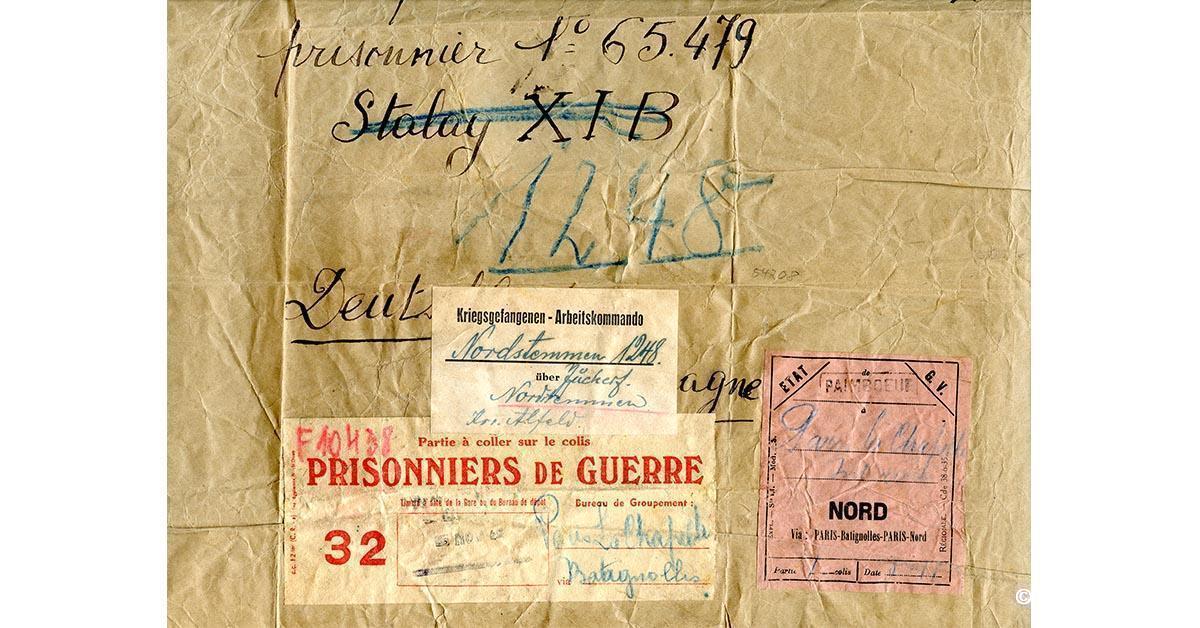 prisonnier No 65.479
Stalag XIB
1248
54208
Kriegsgefangenen - Arbeitskommando
Nordstemmen 1248.
über
Nordstemmen
Krs. Alfeld.
agne
F10438
Partie à coller sur le colis
PRISONNIERS DE GUERRE
Timbre à date de la Gare ou du Bureau de dépôt
Bureau de Groupement :
32
Batignolles
via
ETAT
de
G. V.
PAIMBOEUF
à
NORD
Via : PARIS-Batignolles-PARIS-Nord
Partie
colis
Date
©